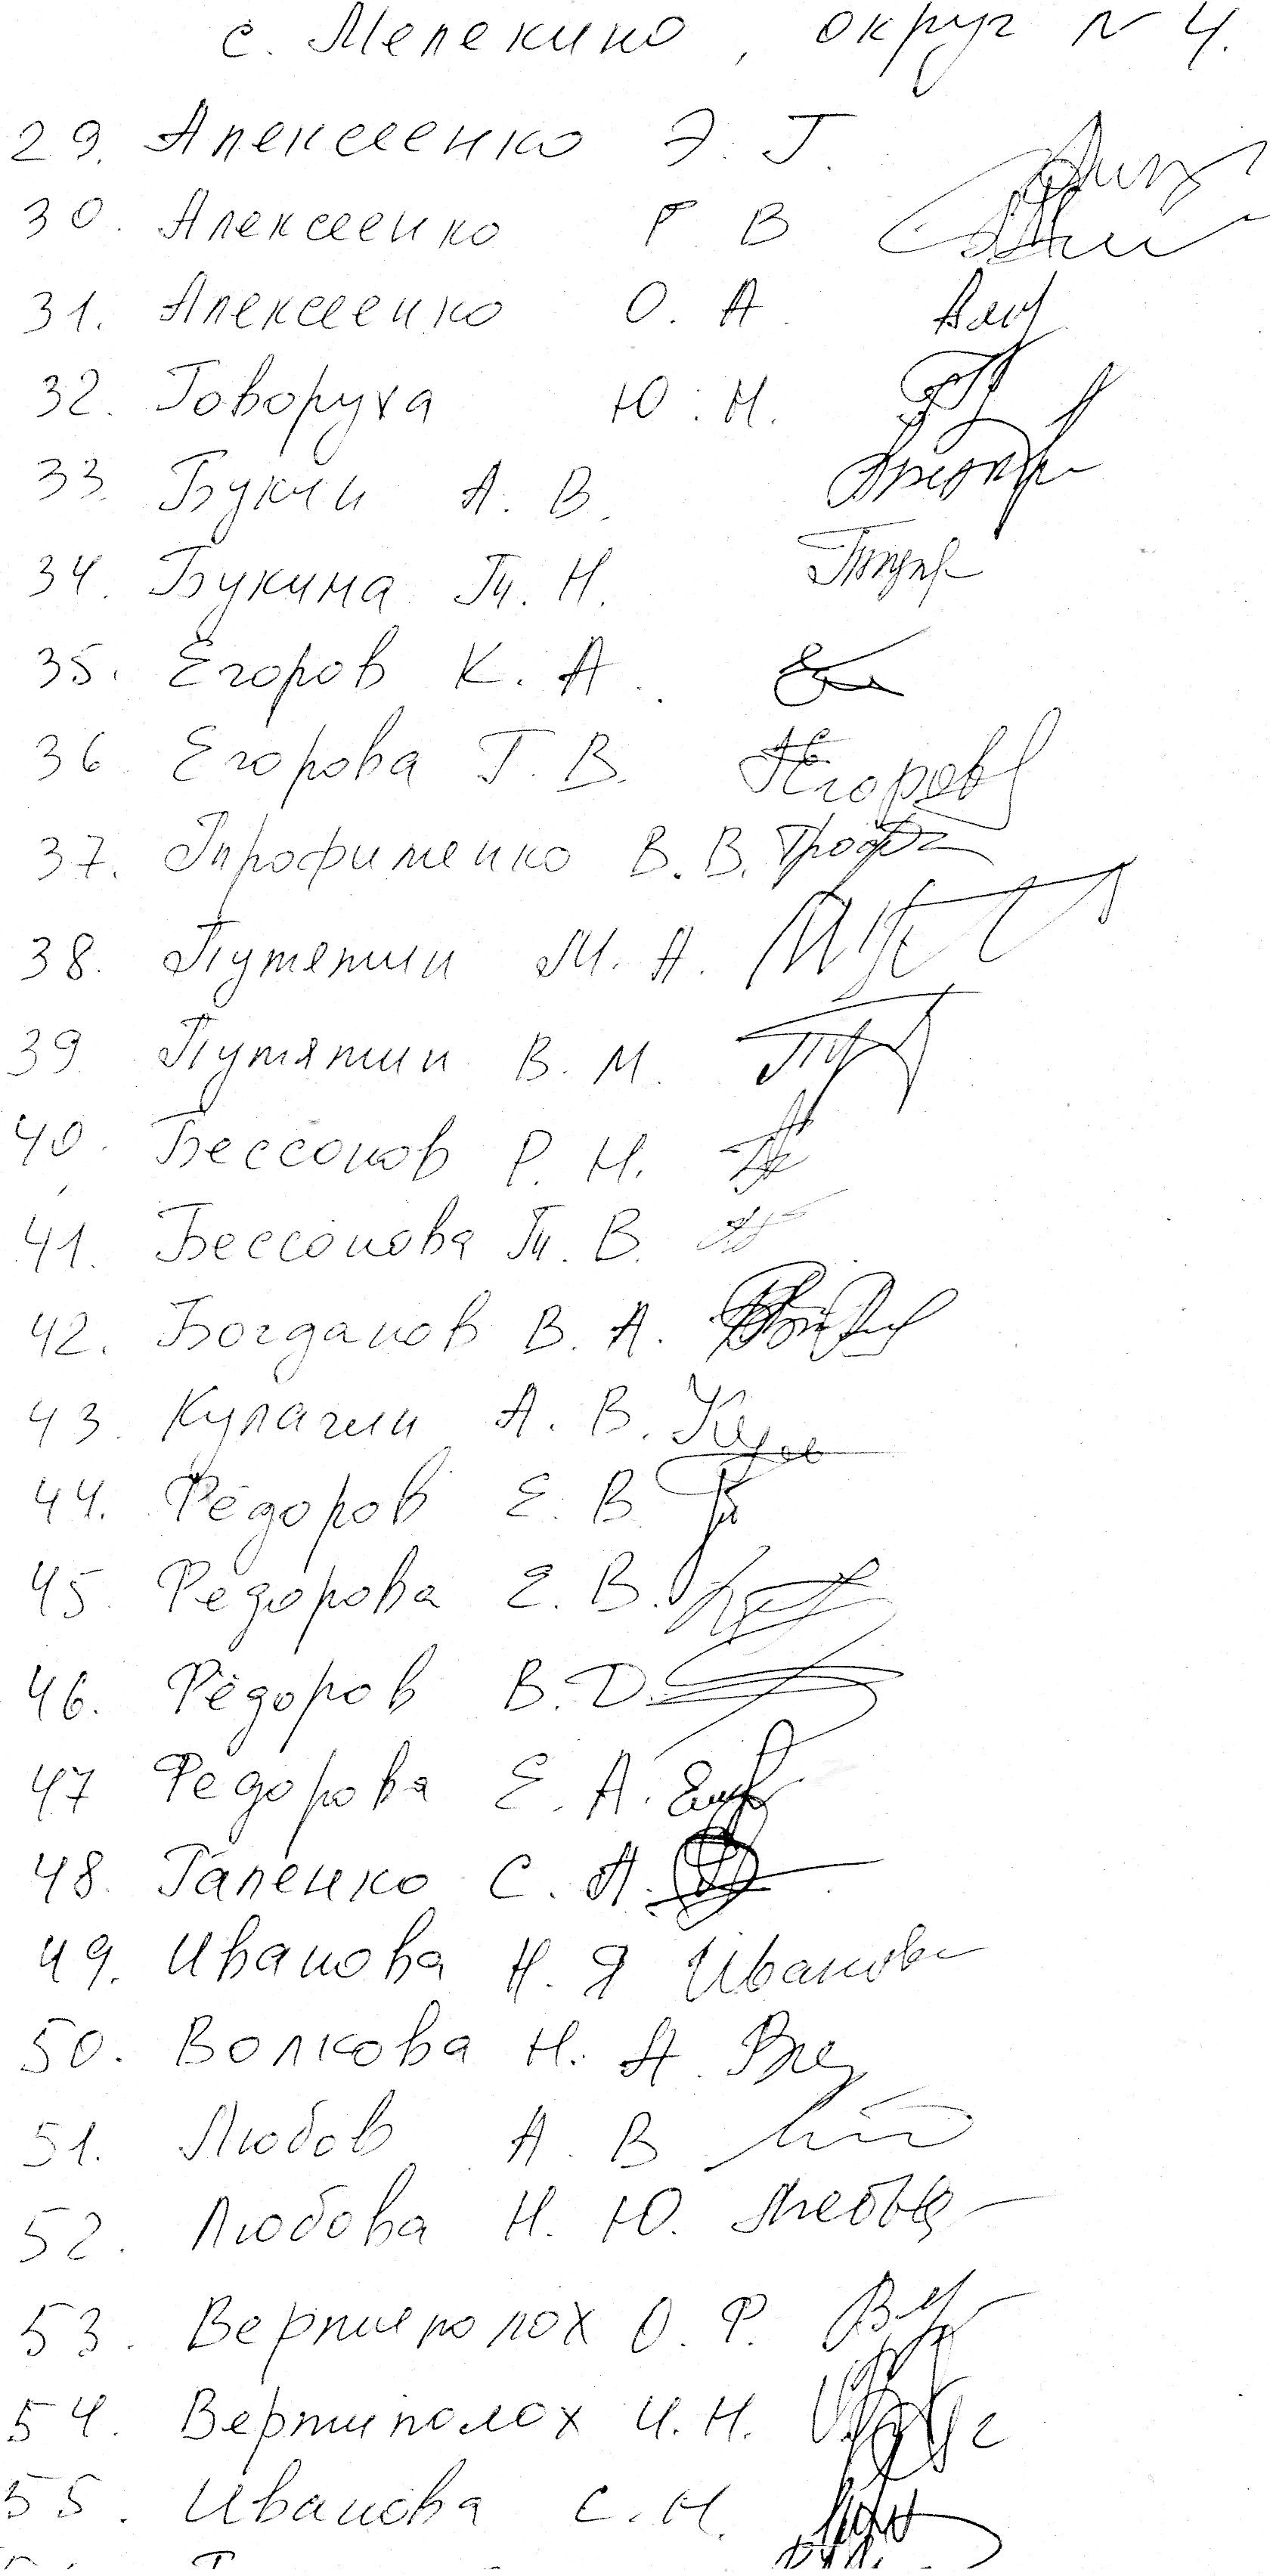 с. Мелекино, округ N 4.
29. Алексеенко Э. Г.
30. Алексеенко Г В
31. Алексеенко О. А.
32. Говоруха Ю. Н.
33. Букин А. В.
34. Букина Т. Н.
35. Егоров К. А.
36 Егорова Г. В.
37. Трофименко В. В. Троф
38. Путятин М. А.
39 Путятин В. М.
40. Бессонов Р. Н.
41. Бессонова Т. В.
42. Богданов В. А.
43. Кулагин А. В.
44. Фёдоров Е. В
45. Федорова Е. В.
46. Фёдоров В. Д.
47 Федорова Е. А.
48. Галенко С. А.
49. Иванова Н. Я Иванова
50. Волкова Н. А.
51. Любов А. В
52. Любова Н. Ю.
53. Вертиполох О. Ф.
54. Вертиполох И. Н.
55. Иванова С. Н.